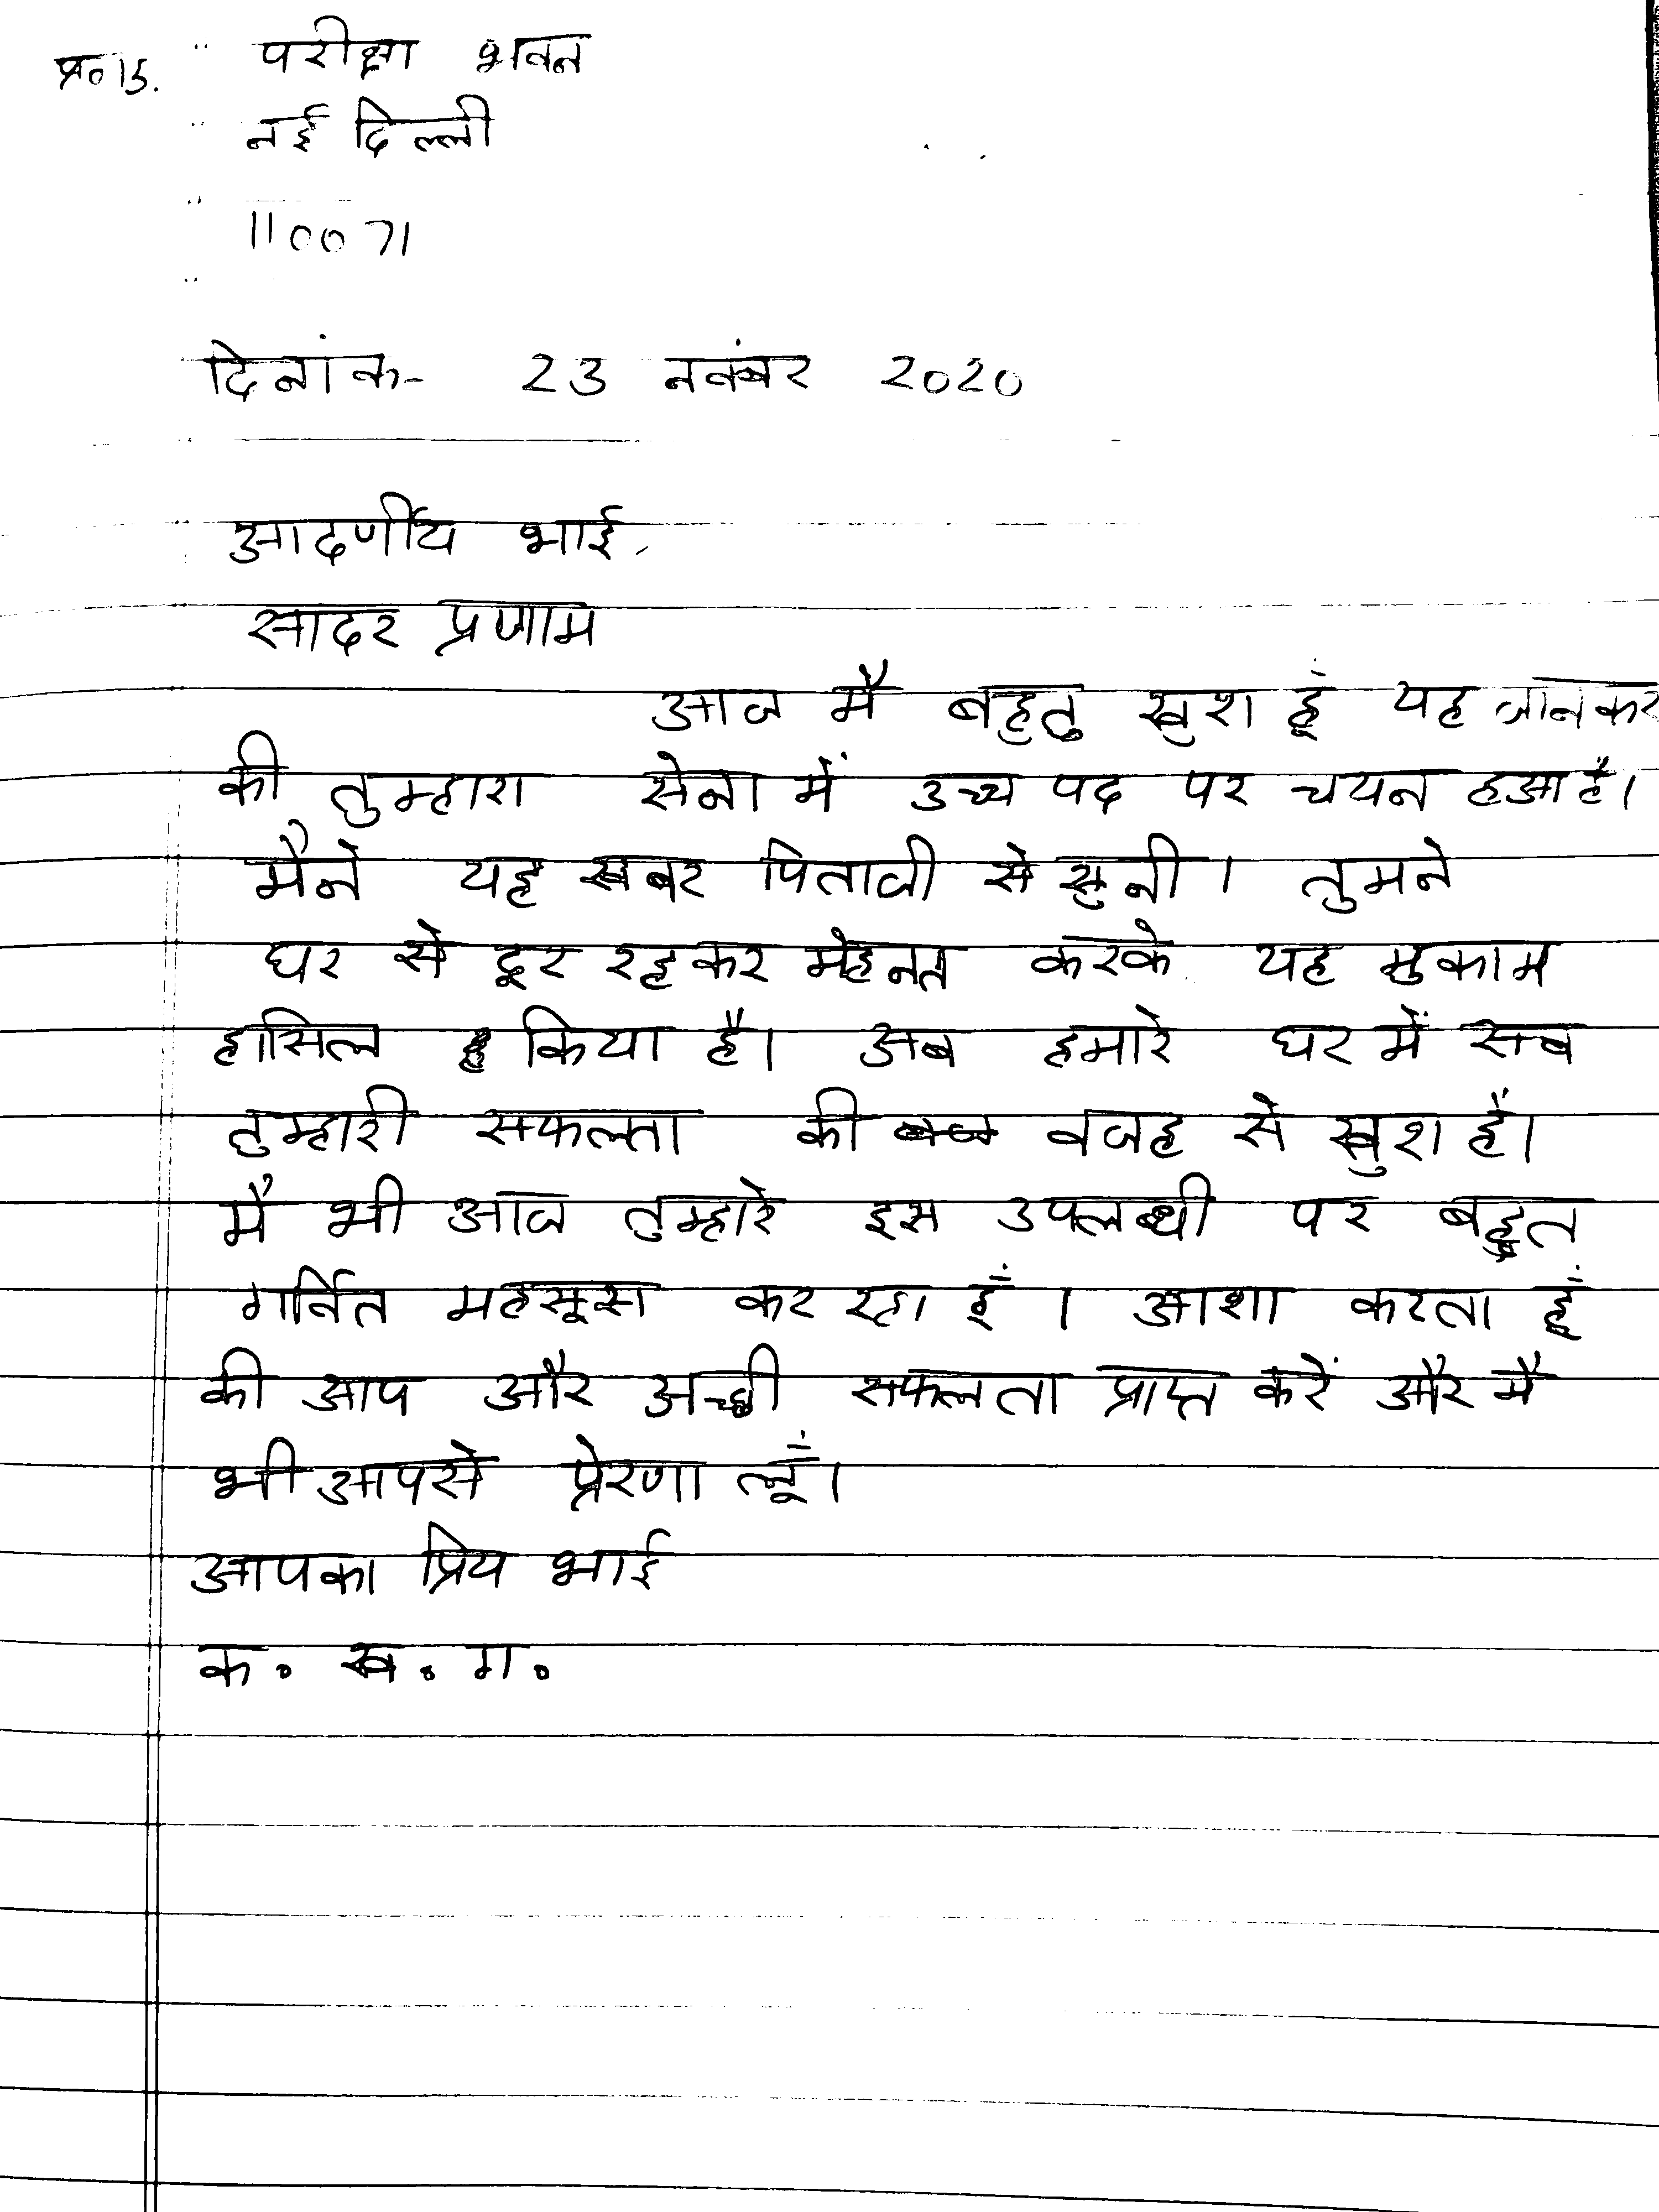 प्र०15. परीक्षा भवन
नई दिल्ली
110071
दिनांक- 23 नवंबर 2020
आदर्णीय भाई,
सादर प्रणाम
आज मै बहुत खुश हूं यह जानकर
की तुम्हारा सेना में उच्च पद पर चयन हुआ है।
मैने यह खबर पिताजी से सुनी। तुमने
घर से दूर रहकर मेहनत करके यह मुकाम
हासिल किया है। अब हमारे घर में सब
तुम्हारी सफलता की वजह से खुश है।
मै भी आज तुम्हारे इस उपलब्धी पर बहुत
गर्वित महसूस कर रहा हूं। आशा करता हूं
की आप और अच्छी सफलता प्राप्त करें और मै
भी आपसे प्रेरणा लूं।
आपका प्रिय भाई
क. ख. ग.